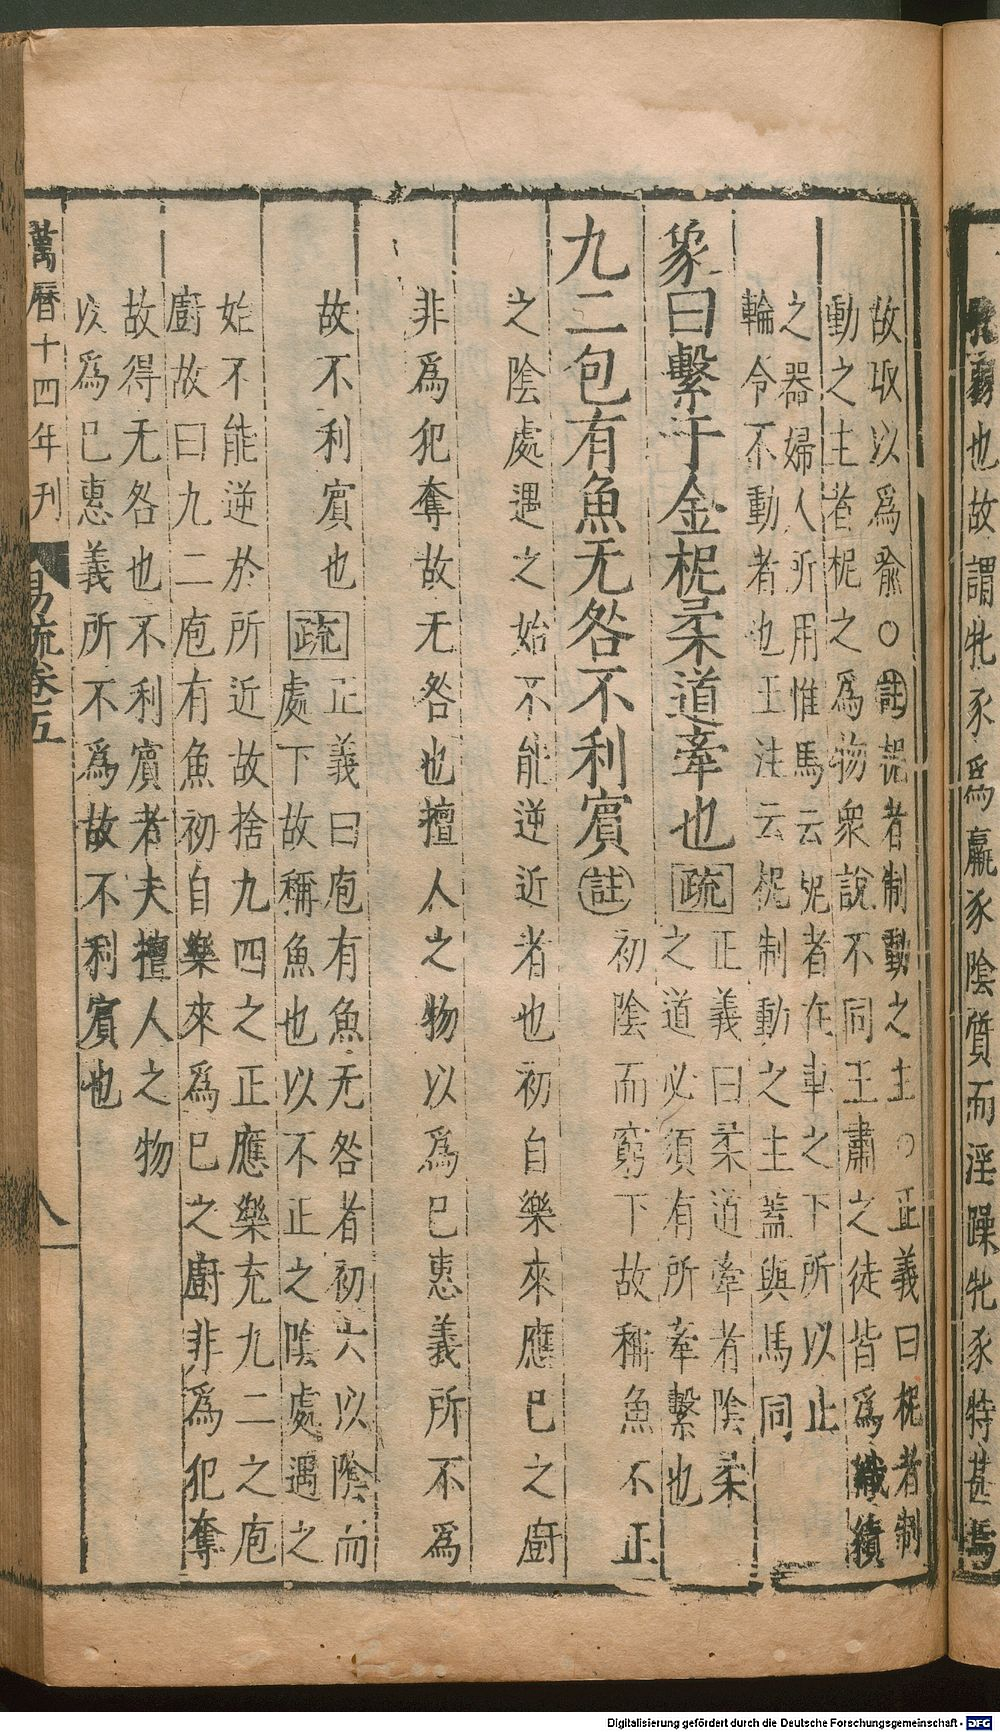 也故謂牝豕爲羸豕陰質而淫躁牝豕特甚焉
故取以爲喩○註柅者制動之主○正義曰柅者制
動之主者柅之爲物衆說不同王肅之徒皆爲織績
之器婦人所用惟馬云柅者在車之下所以止
輪令不動者也王注云柅制動之主蓋與馬同
象曰繫于金柅柔道牽也疏正義曰柔道牽者陰柔
之道必須有所牽繫也
九二包有魚无咎不利賓註初陰而窮下故稱魚不正
之陰處遇之始不能逆近者也初自樂來應已之廚
非爲犯奪故无咎也擅人之物以爲已惠義所不爲
故不利賓也疏正義曰庖有魚无咎者初六以陰而
處下故稱魚也以不正之陰處遇之
始不能逆於所近故捨九四之正應樂充九二之庖
廚故曰九二庖有魚初自樂來爲巳之廚非爲犯奪
故得无咎也不利賓者夫擅人之物
以爲巳惠義所不爲故不利賓也
萬曆十四年刋
易疏卷五
八
Digitalisierung gefördert durch die Deutsche Forschungsgemeinschaft - DFG